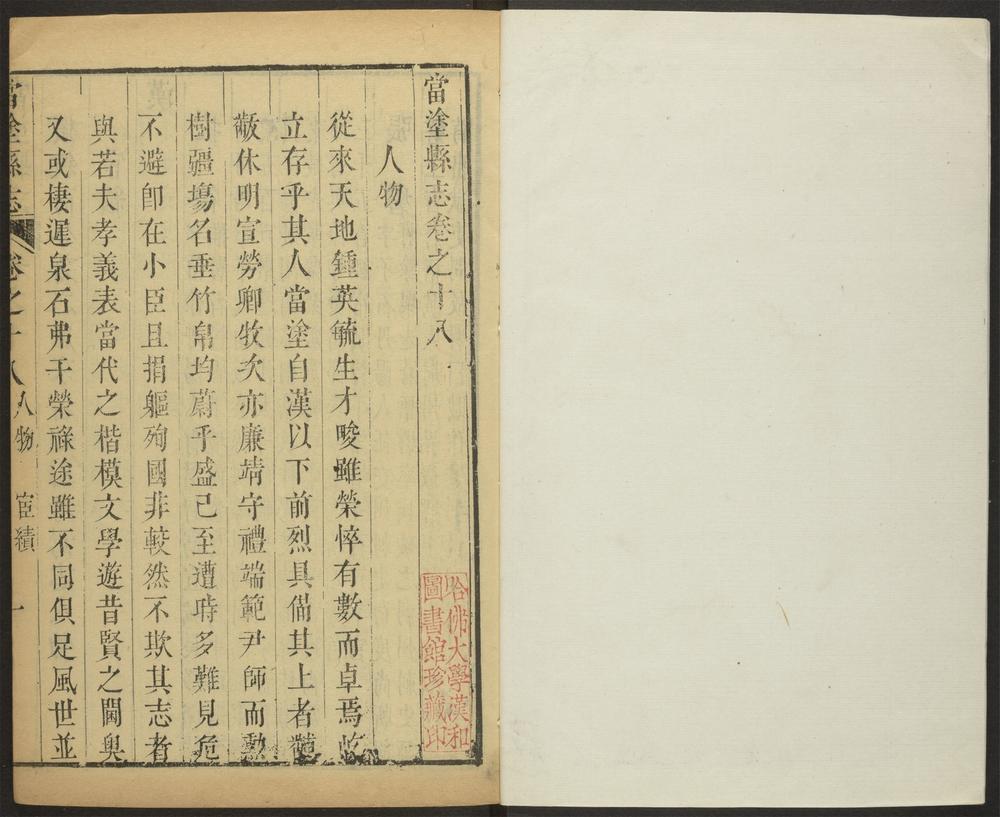 當塗縣志卷之十八
人物
從來天地鍾英毓生才畯雖榮悴有數而卓焉屹
立存乎其人當塗自漢以下前烈具備其上者黼
黻休明宣勞卿牧次亦廉靖守禮端範尹師而勳
樹疆場名垂竹帛均蔚乎盛已至遭時多難見危
不避卽在小臣且捐軀殉國非較然不欺其志者
與若夫孝義表當代之楷模文學遊昔賢之閫奧
又或棲遲泉石弗干榮祿途雖不同俱足風世並
當塗縣志 卷之十八 人物 宦績 一
哈佛大學漢和
圖書館珍藏印